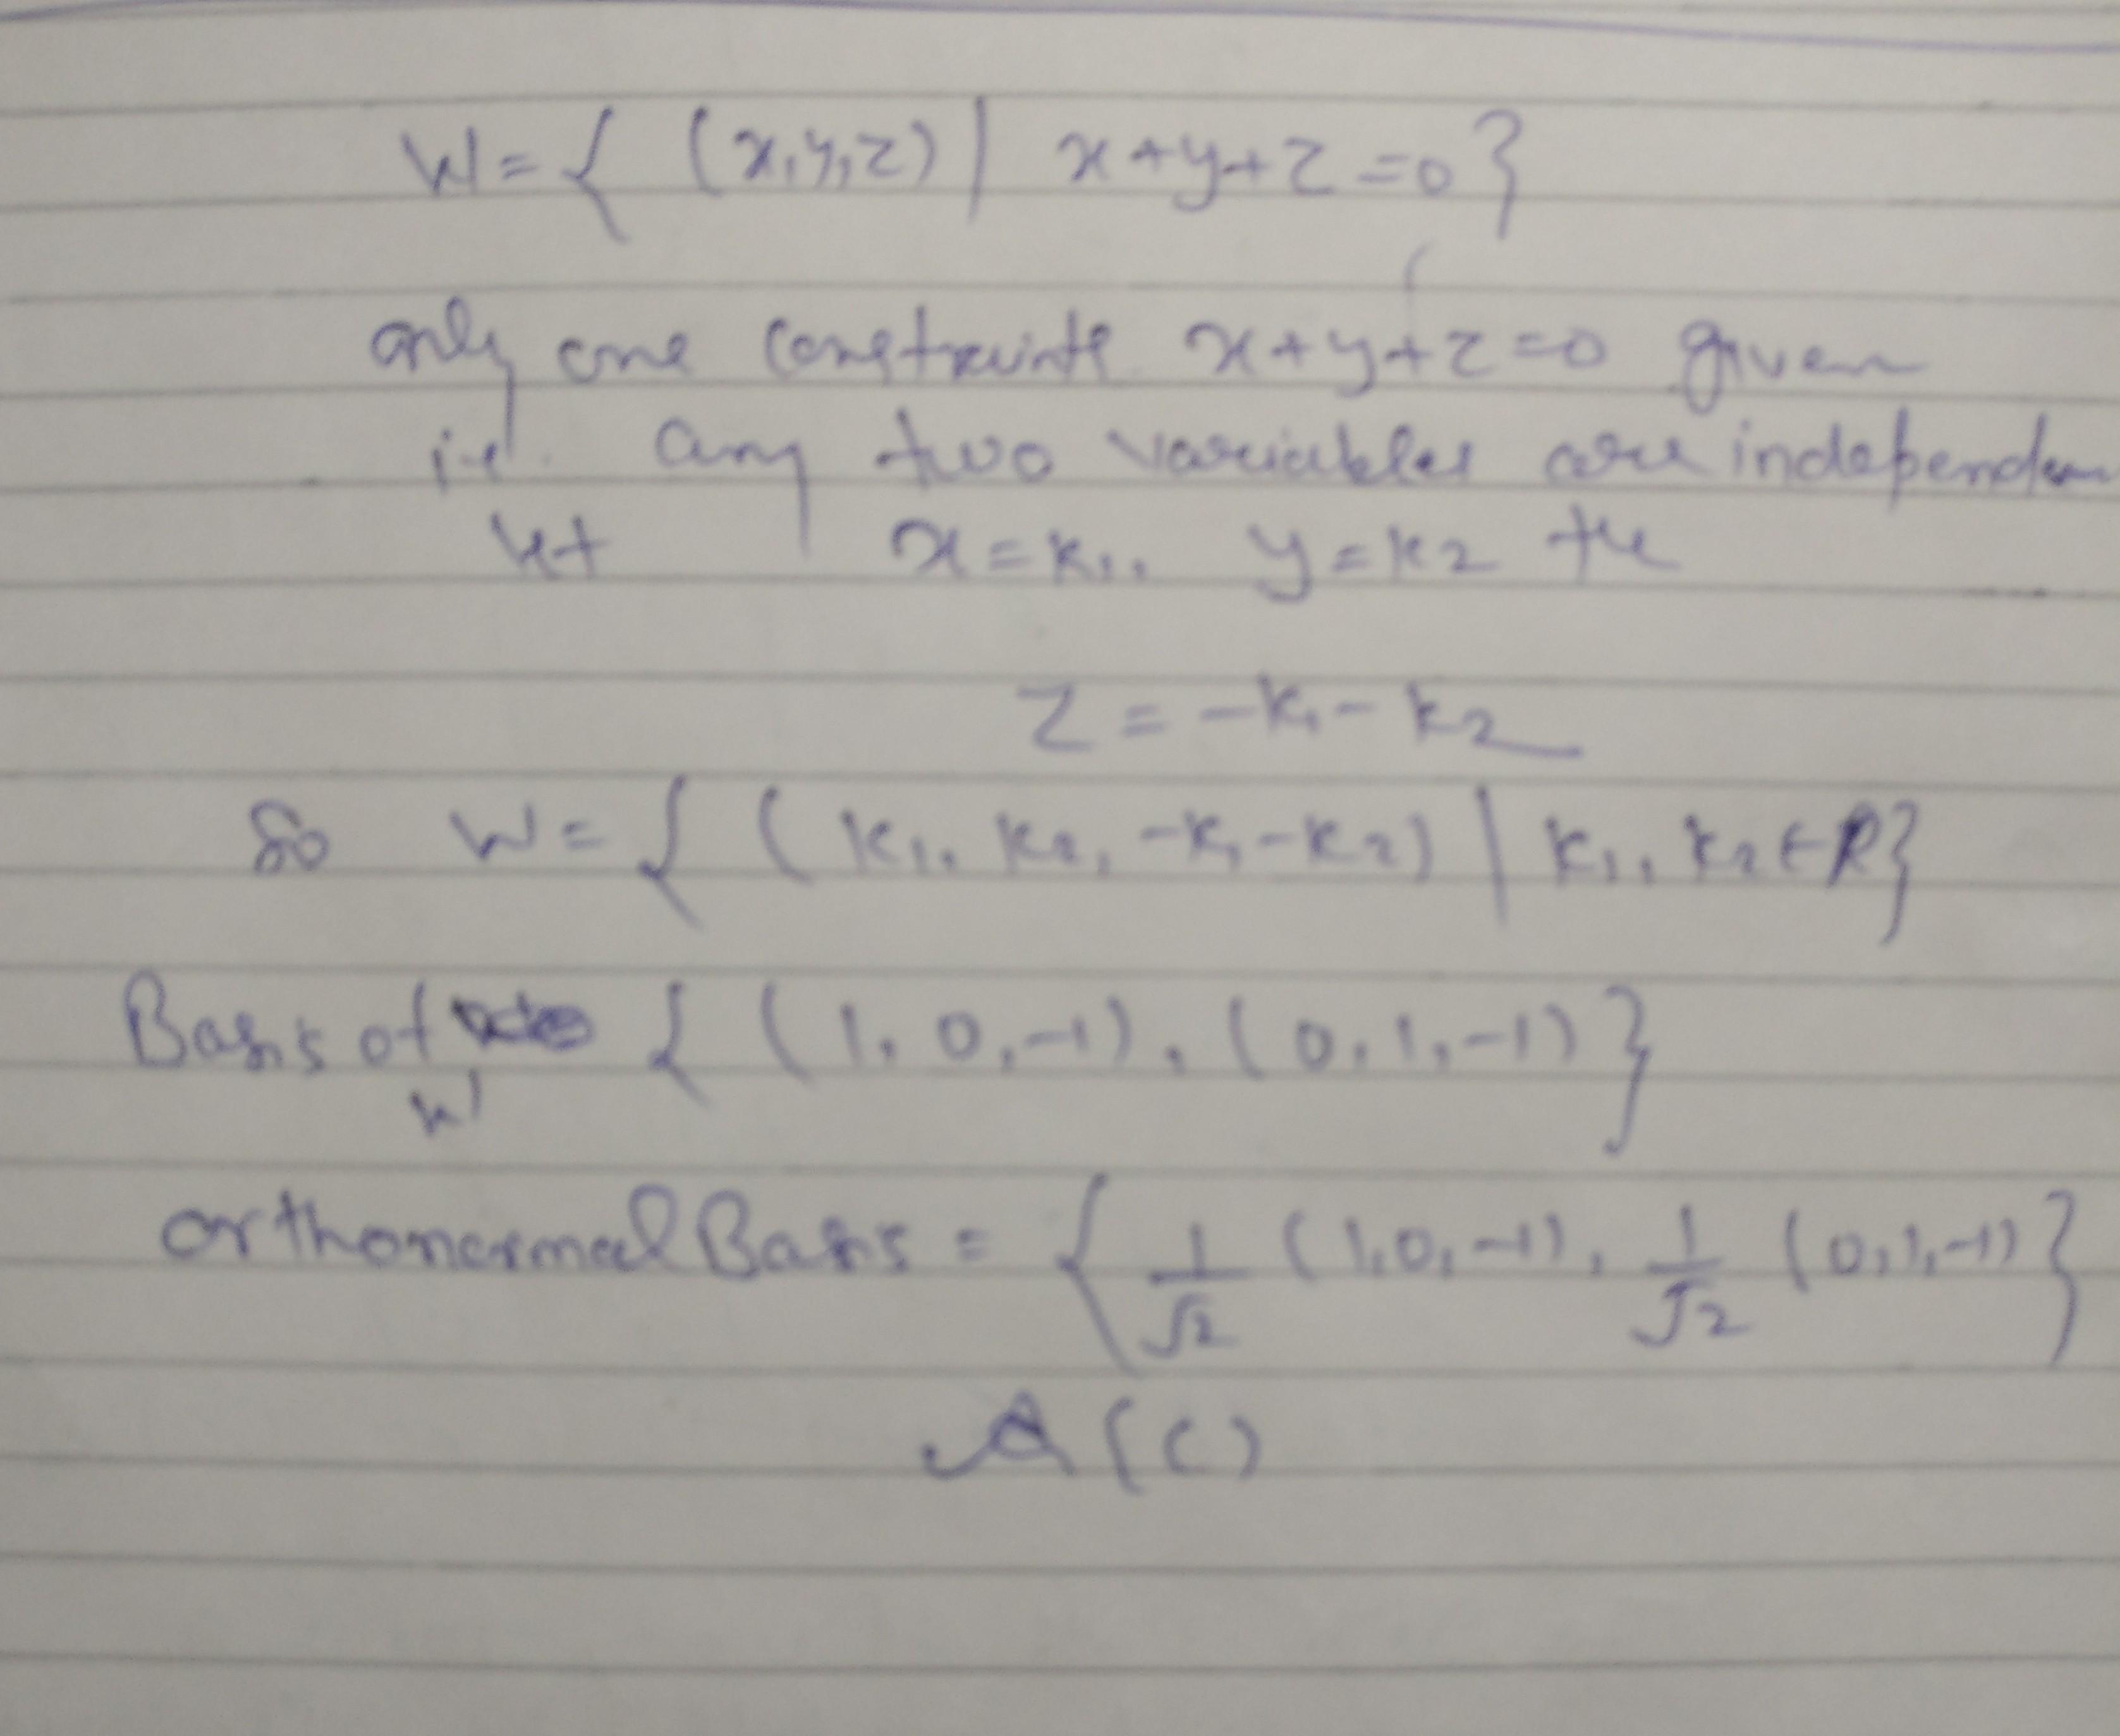 W = { (x,y,z) | x+y+z=0}
only one constraints x+y+z=0 given
i.e. any two variables are independen
let x=k1, y=k2 the
z = -k1-k2
So W = { (k1, k2, -k1-k2) | k1, k2 ∈ R}
Basis of { (1, 0,-1), (0,1,-1)}
W
orthonormal Basis = { 1/√2 (1,0,-1), 1/√2 (0,1,-1)}
A (C)